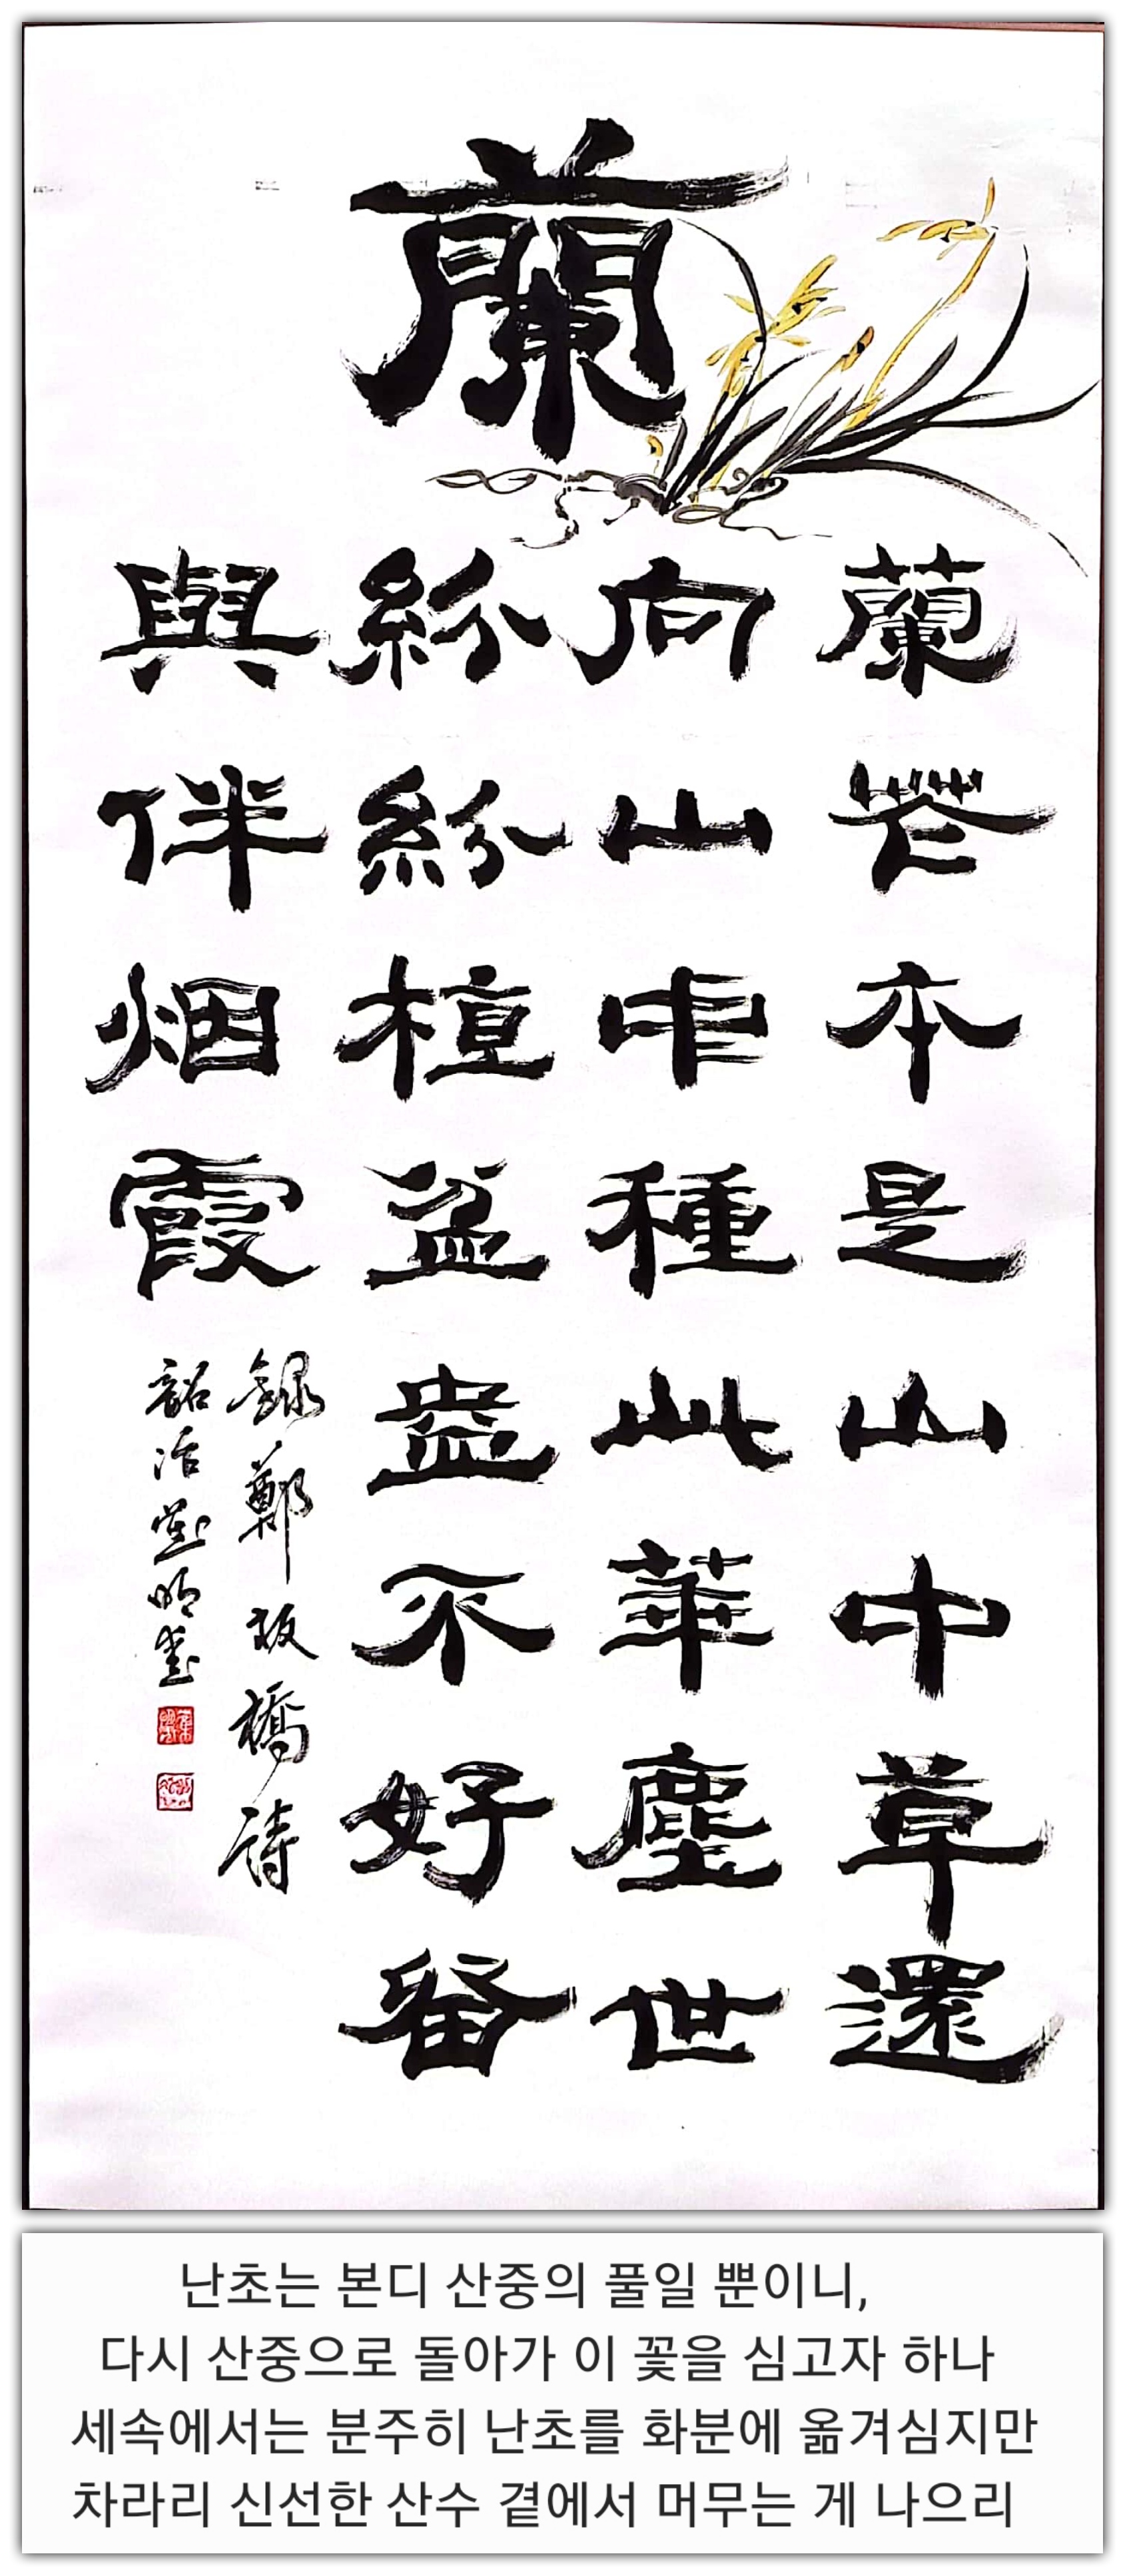 蘭
蘭花本是山中草還
向山中種此華塵世
紛紛植盆盎不好留
與伴烟霞
錄鄭板橋詩
난초는 본디 산중의 풀일 뿐이니,
다시 산중으로 돌아가 이 꽃을 심고자 하나
세속에서는 분주히 난초를 화분에 옮겨심지만
차라리 신선한 산수 곁에서 머무는 게 나으리